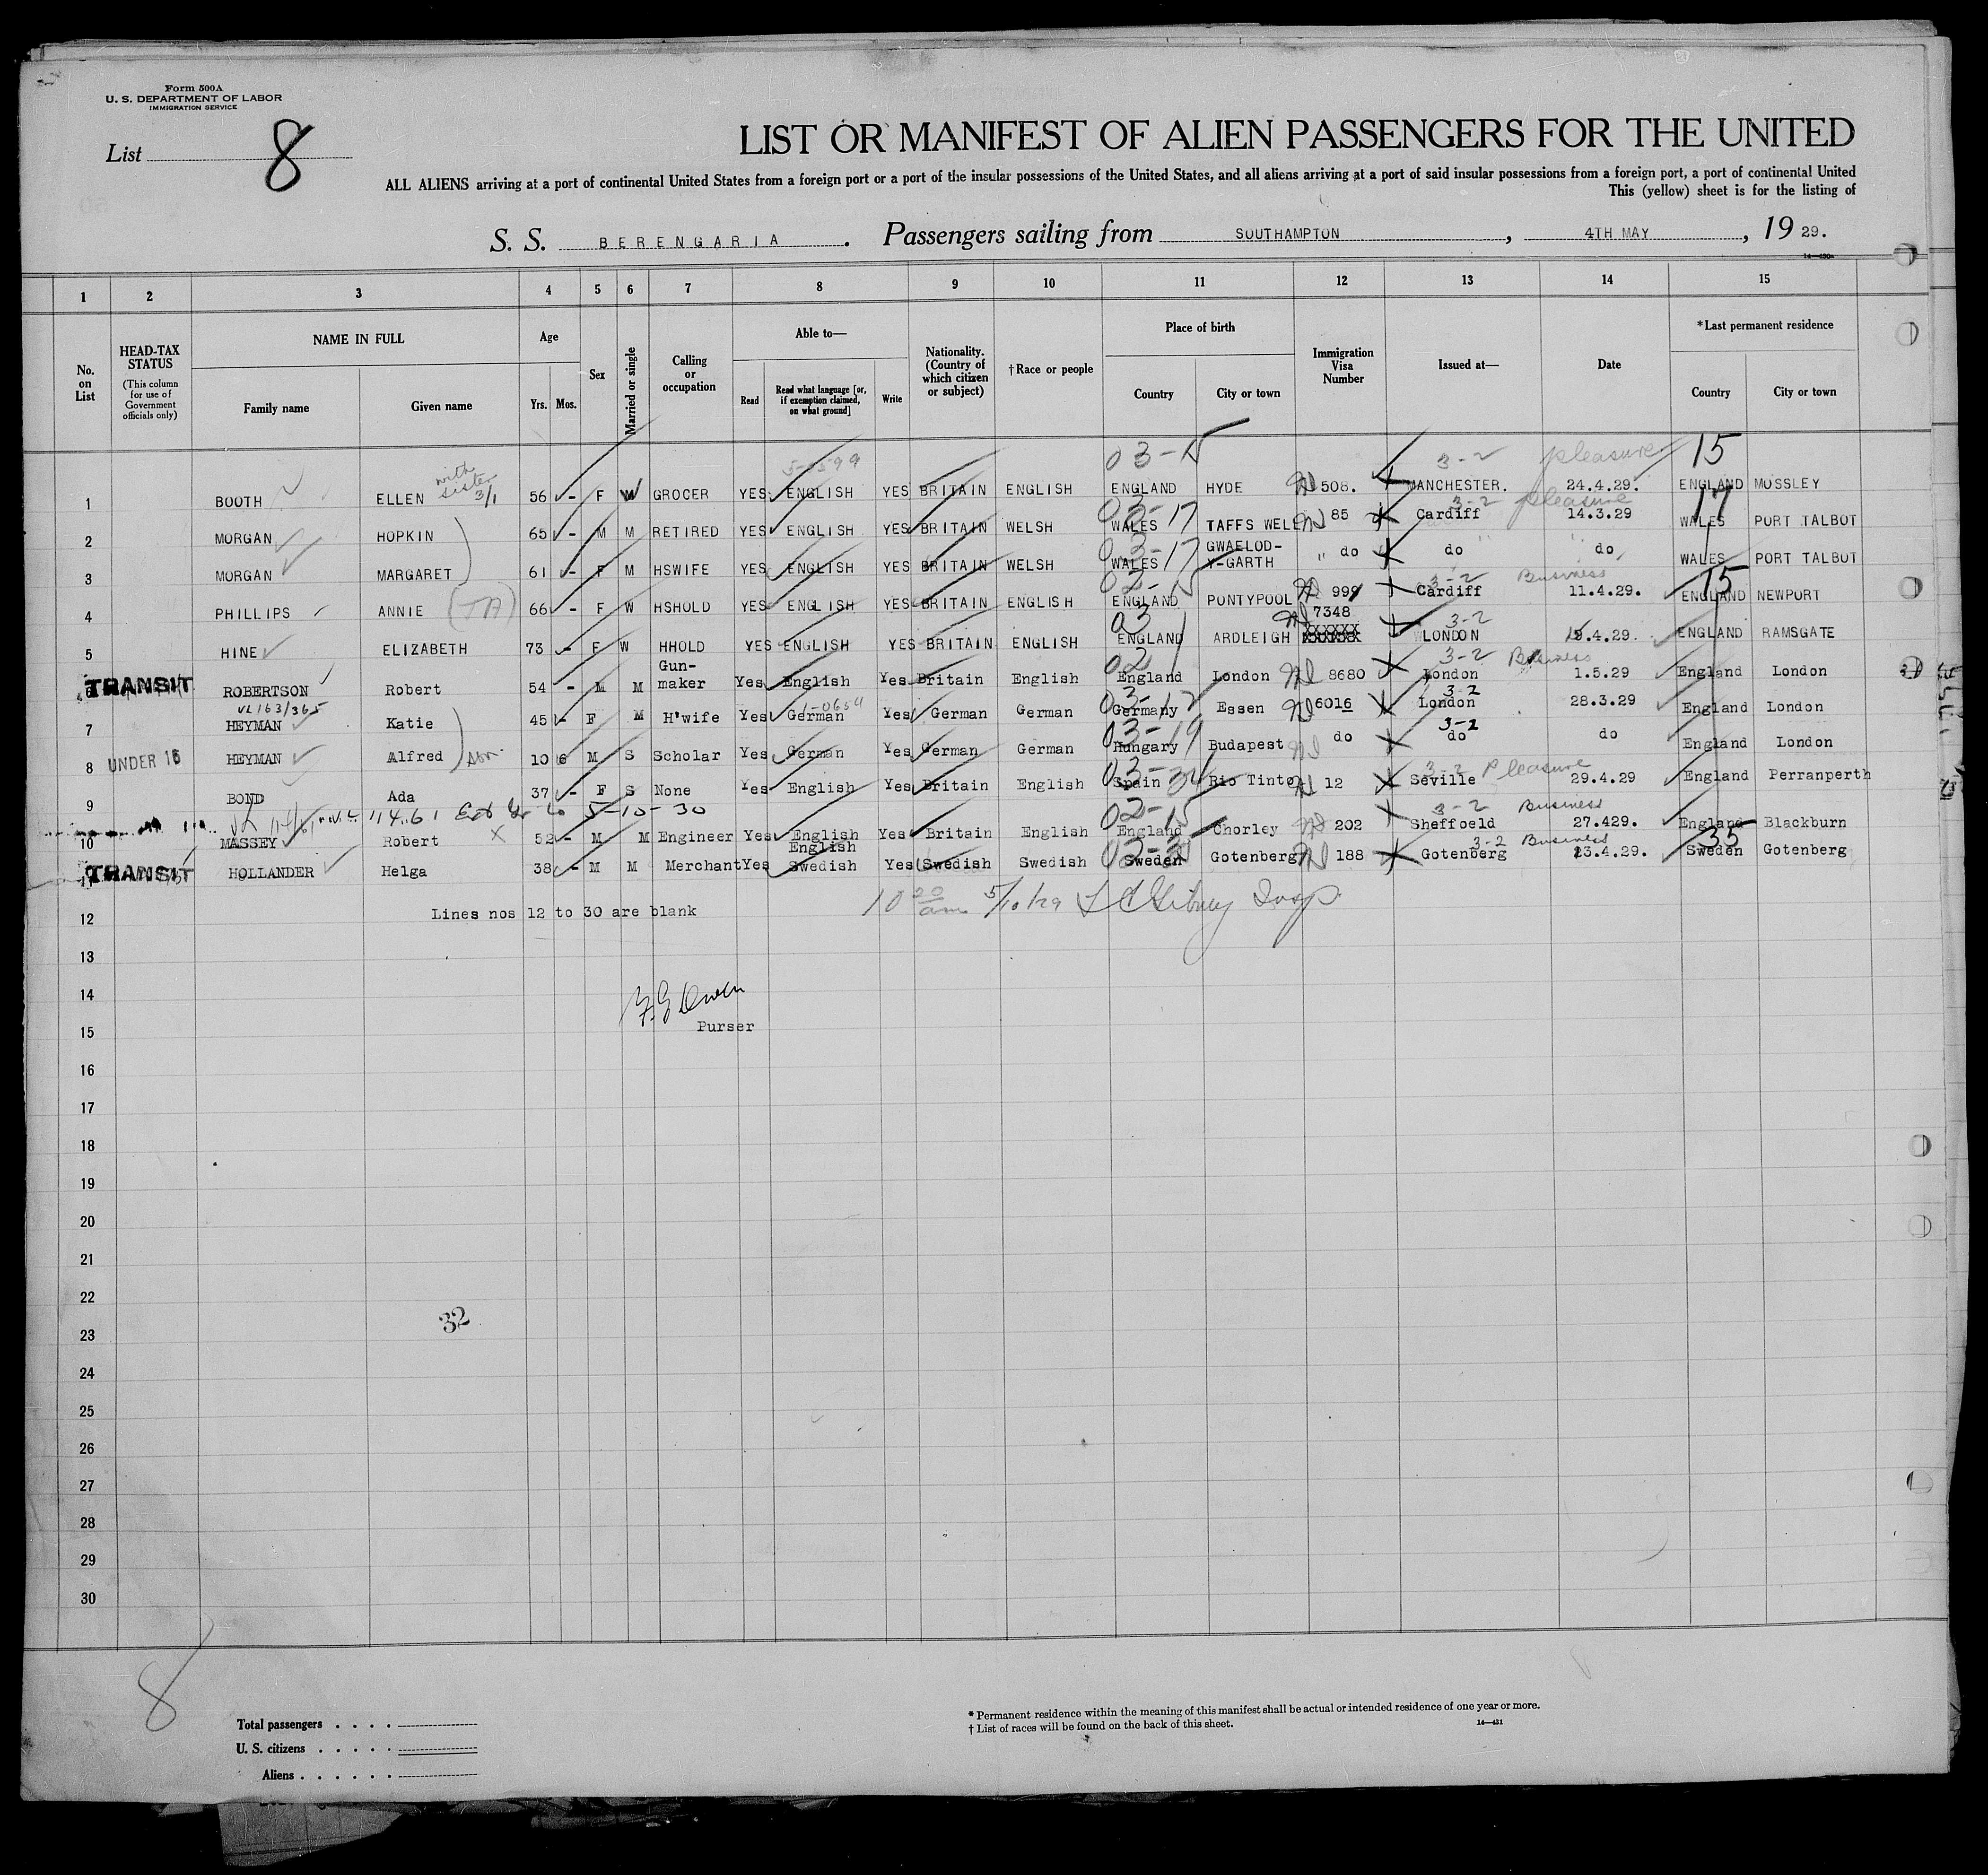 Form 500A
U. S. DEPARTMENT OF LABOR
IMMIGRATION SERVICE
List 8
LIST OR MANIFEST OF ALIEN PASSENGERS FOR THE UNITED
ALL ALIENS arriving at a port of continental United States from a foreign port or a port of the insular possessions of the United States, and all aliens arriving at a port of said insular possessions from a foreign port, a port of continental United
This (yellow) sheet is for the listing of
S. S. BERENGARIA. Passengers sailing from SOUTHAMPTON, 4TH MAY, 19 29.
14—430a
1 2 3 4 5 6 7 8 9 10 11 12 13 14 15
No. on List
HEAD-TAX STATUS (This column for use of Government officials only)
NAME IN FULL Family name Given name
Age Yrs. Mos.
Sex
Married or single
Calling or occupation
Able to— Read Read what language [or, if exemption claimed, on what ground] Write
Nationality. (Country of which citizen or subject)
†Race or people
Place of birth Country City or town
Immigration Visa Number
Issued at—
Date
*Last permanent residence Country City or town
with sister 3/1 5-0599 03-15 3-2 pleasure 15
1 BOOTH ELLEN 56 - F GROCER YES ENGLISH YES BRITAIN ENGLISH ENGLAND HYDE 508. MANCHESTER. 24.4.29. ENGLAND MOSSLEY
03-17 3-2 pleasure 17
2 MORGAN HOPKIN 65 - M M RETIRED YES ENGLISH YES BRITAIN WELSH WALES TAFFS WELL 85 Cardiff 14.3.29 WALES PORT TALBOT
03-17
3 MORGAN MARGARET 61 - F M HSWIFE YES ENGLISH YES BRITAIN WELSH WALES GWAELOD-Y-GARTH " do do do WALES PORT TALBOT
02-15 3-2 Business 15
4 PHILLIPS ANNIE (TA) 66 - F W HSHOLD YES ENGLISH YES BRITAIN ENGLISH ENGLAND PONTYPOOL 999 Cardiff 11.4.29. ENGLAND NEWPORT
03 3-2
5 HINE ELIZABETH 73 - F W HHOLD YES ENGLISH YES BRITAIN ENGLISH ENGLAND ARDLEIGH 7348 LONDON 9.4.29. ENGLAND RAMSGATE
02 3-2 Business
TRANSIT ROBERTSON Robert 54 - M M Gun-maker Yes English Yes Britain English England London 8680 London 1.5.29 England London
VL163/365 1-0654 03-12 3-2
7 HEYMAN Katie 45 - F M H'wife Yes German Yes German German Germany Essen 6016 London 28.3.29 England London
03-19 3-2
8 UNDER 16 HEYMAN Alfred son 10 6 M S Scholar Yes German Yes German German Hungary Budapest do do do England London
3-2 Pleasure
9 BOND Ada 37 - F S None Yes English Yes Britain English Spain Rio Tinto 12 Seville 29.4.29 England Perranperth
5-10-30 02-15 3-2 Business
10 MASSEY Robert 52 - M M Engineer Yes English Yes Britain English England Chorley 202 Sheffoeld 27.429. England Blackburn
3-2 Business 35
TRANSIT 11 HOLLANDER Helga 38 - M M Merchant Yes English Swedish Yes Swedish Swedish Sweden Gotenberg 188 Gotenberg 23.4.29. Sweden Gotenberg
12 Lines nos 12 to 30 are blank 10 20 am 5/10/29
13
14
Purser
15
16
17
18
19
20
21
22
32
23
24
25
26
27
28
29
30
8
Total passengers . . . .
U. S. citizens . . . . .
Aliens . . . . . .
* Permanent residence within the meaning of this manifest shall be actual or intended residence of one year or more.
† List of races will be found on the back of this sheet. 14—431